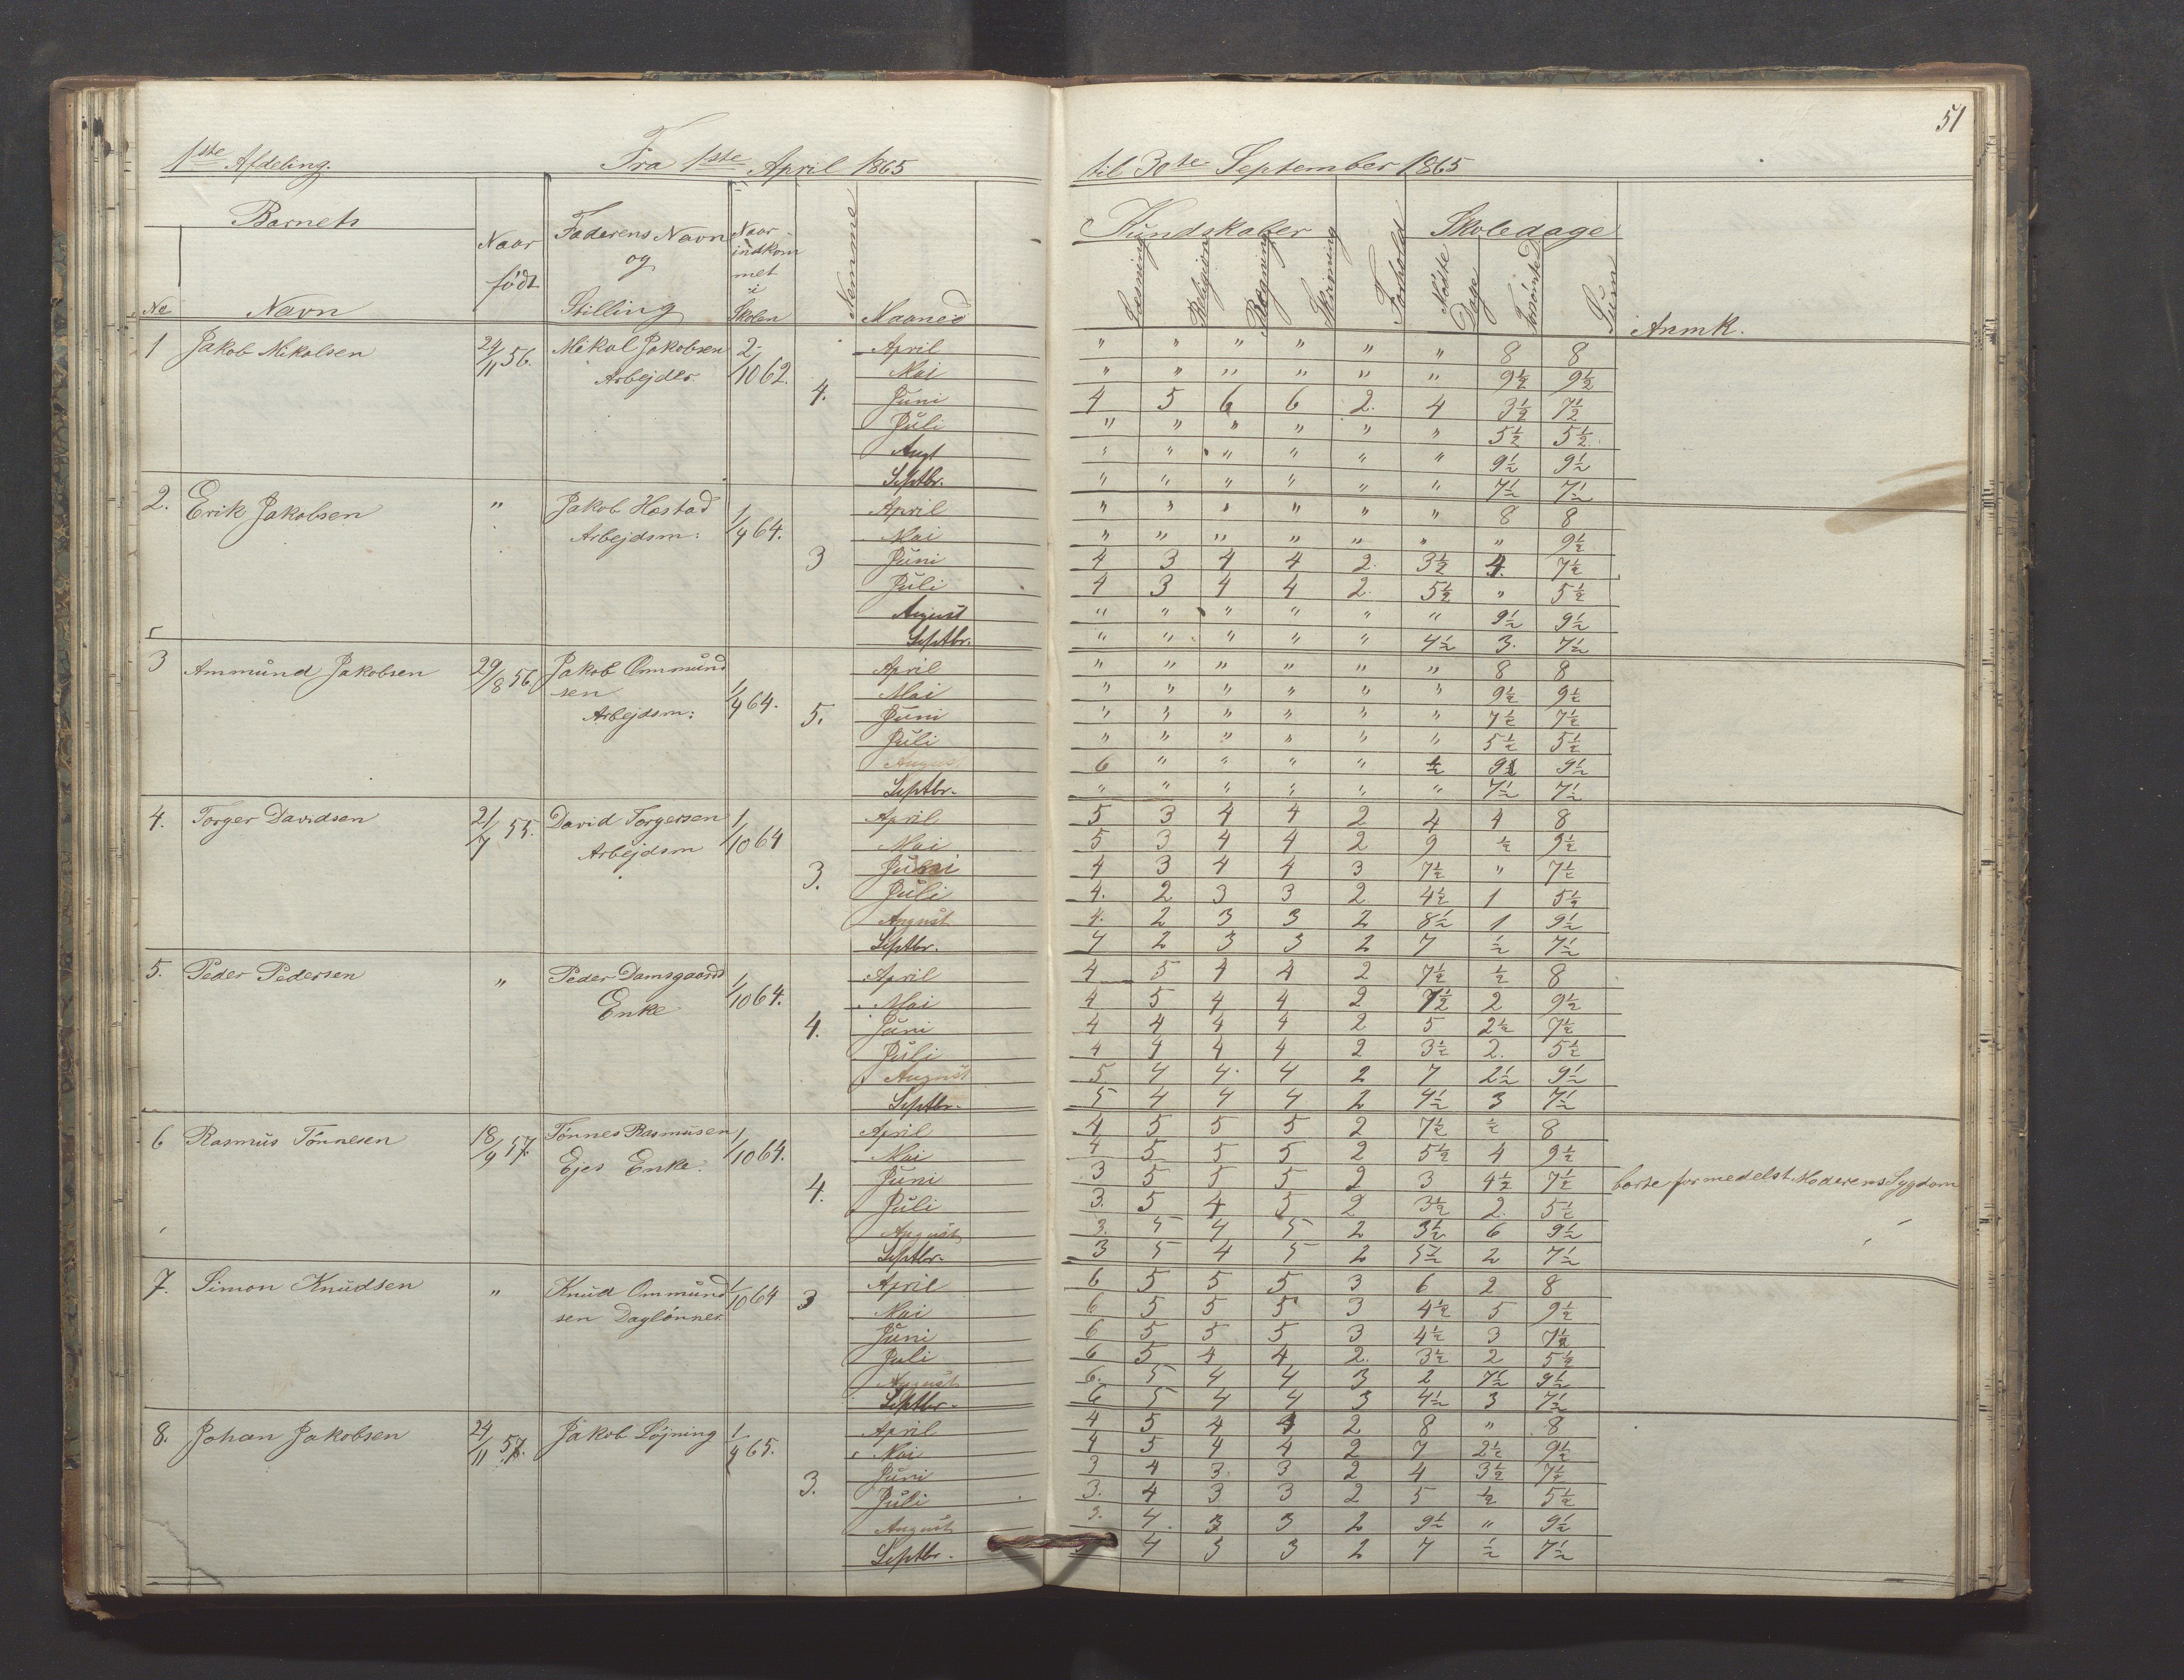 51
1ste Afdeling. Fra 1ste April 1865 til 30te September 1865
Barnets Naar født Faderens Navn og Stilling Naar indkommet i Skolen Nemme Maaned Kundskaber Forhold Skoledage Anmk.
No Navn Læsning Religion Regning Skrivning Mödte Dage Forsömte D Sum
1 Jakob Nikolsen 24/11 56. Mikal Jakobsen 2/10 62. April " " " " " " 8 8
Arbejder Mai " " " " " " 9½ 9½
4. Juni 4 5 6 6 2. 4 3½ 7½
Juli " " " " " " 5½ 5½
Augt " " " " " " 9½ 9½
Septbr. " " " " " " 7½ 7½
2. Erik Jakobsen " Jakob Hostad 1/4 64. April " " " " " " 8 8
Arbejdsm: Mai " " " " " " " 9½
3 Juni 4 3 4 4 2. 3½ 4. 7½
Juli 4 3 4 4 2. 5½ " 5½
August " " " " " " 9½ 9½
Septbr. " " " " " 4½ 3. 7½
3 Ammund Jakobsen 29/8 56. Jakob Ommund April " " " " " " 8 8
sen 1/4 64. Mai " " " " " " 9½ 9½
Arbejdsm: 5. Juni " " " " " " 7½ 7½
Juli " " " " " " 5½ 5½
August 6 " " " " ½ 9 9½
Septbr. " " " " " " 7½ 7½
4. Torger Davidsen 21/7 55. David Torgersen 1/10 64 April 5 3 4 4 2 4 4 8
Arbejdsm Mai 5 3 4 4 2 9 ½ 9½
3. Juni 4 3 4 4 3 7½ " 7½
Juli 4. 2 3 3 2 4½ 1 5½
August 4. 2 3 3 2 8½ 1 9½
Septbr. 4 2 3 3 2 7 ½ 7½
5. Peder Pedersen " Peder Damsgaards 1/10 64. April 4 5 4 4 2 7½ ½ 8
Enke Mai 4 5 4 4 2 7½ 2 9½
4. Juni 4 4 4 4 2 5 2½ 7½
Juli 4 4 4 4 2 3½ 2. 5½
August 5 4 4. 4 2 7 2½ 9½
Septbr. 5 4 4 4 2 4½ 3 7½
6 Rasmus Tönnesen 18/9 57. Tönnes Rasmusen 1/10 64. April 4 5 5 5 2 7½ ½ 8
Ejes Enke. Mai 4 5 5 5 2 5½ 4 9½
4. Juni 3 5 5 5 2 3 4½ 7½ borte formedelst Moderens Sygdom
Juli 3. 5 4 5 2 3½ 2. 5½
August 3. 5 4 5 2 3½ 6 9½
Septbr. 3 5 4 5 2 5½ 2 7½
7. Simon Knudsen " Knud Ommund 1/10 64 3 April 6 5 5 5 3 6 2 8
sen Daglönner. Mai 6 5 5 5 3 4½ 5 9½
Juni 6 5 5 5 3 4½ 3 7½
Juli 6 5 4 4 2. 3½ 2 5½
August 6. 5 4 4 3 2 7½ 9½
Septbr. 6 5 4 4 3 4½ 3 7½
8. Johan Jakobsen 24/11 57. Jakob Löjning 1/4 65. April 4 5 4 4 2 8 " 8
Mai 4 5 4 4 2 7 2½ 9½
3. Juni 3 4 3 3 2 4 3½ 7½
Juli 3. 4 3 3 2 5 ½ 5½
August 3. 4. 3 3 2 9½ " 9½
Septbr. 4 3 3 2 7 ½ 7½